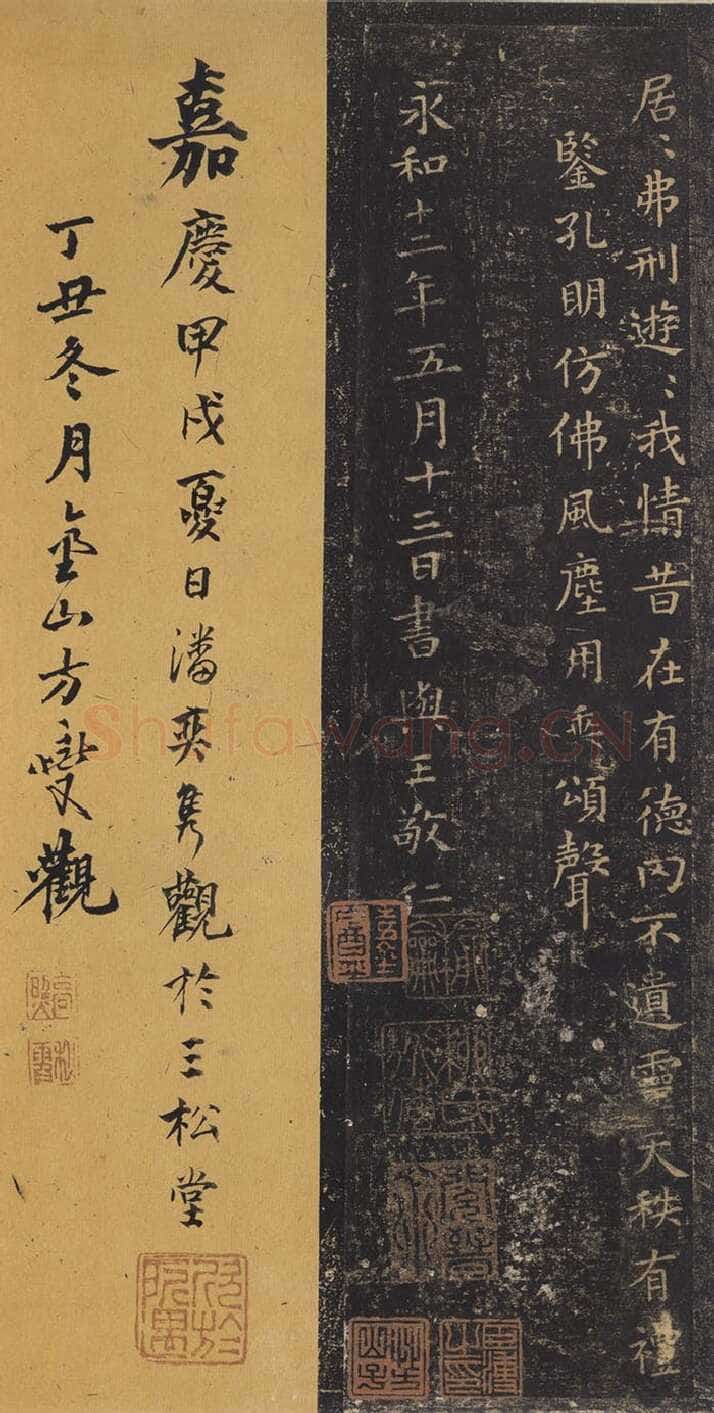 居〻弗刑遊〻我情昔在有德罔不遺靈天秩有禮
鑒孔明仿佛風塵用垂頌聲
永和十二年五月十三日書與王敬仁
嘉慶甲戌夏日潘奕雋觀於三松堂
欣於所遇
丁丑冬月金山方燮觀
Shufawang.CN